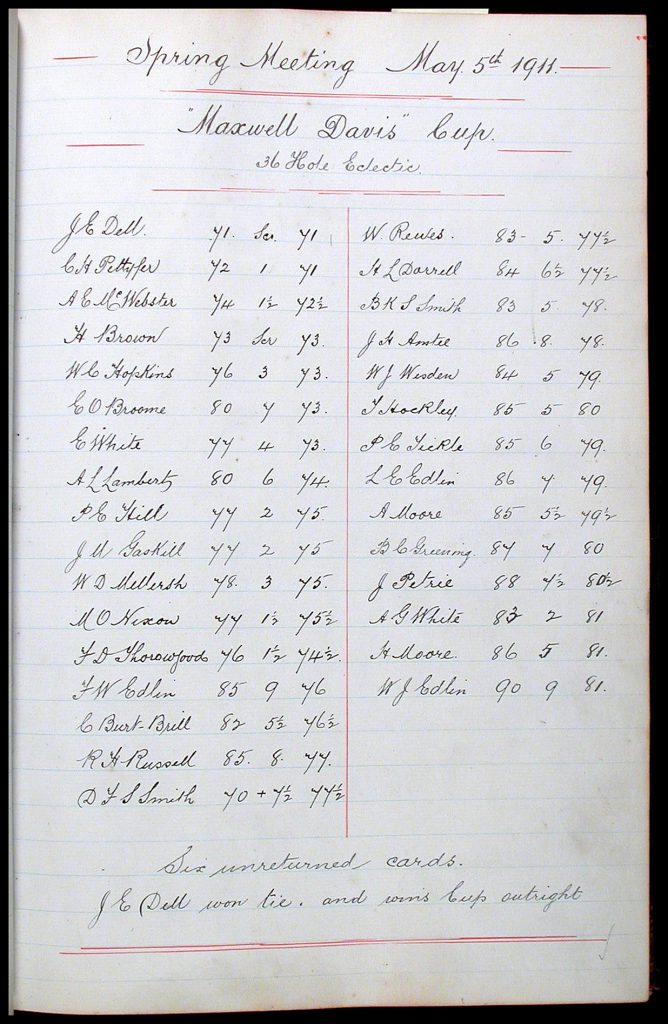 Spring Meeting May. 5th 1911.
"Maxwell Davis" Cup.
36 Hole Eclectic.
J E Dell. 71. Scr. 71
C H Pettyfer 72 1 71
A E McWebster 74 1½ 72½
H Brown 73 Scr 73.
W C Hopkins 76 3 73.
E O Broome 80 7 73.
E White 77 4 73.
A L Lambert 80 6 74.
P E Hill 77 2 75.
J M Gaskill 77 2 75
W D Mellersh 78. 3 75.
M O Nixon 77 1½ 75½
F D Thorowgood 76 1½ 74½.
F W Edlin 85 9 76
C Burt-Brill 82 5½ 76½
R H Russell 85. 8. 77.
D F S Smith 70 + 7½ 77½
W. Reeves. 83- 5. 77½
H L Dorrell 84 6½ 77½
B K S Smith 83 5. 78.
J H 86 .8. 78.
W J Wisden 84 5 79.
T Hockley 85 5 80
P C Tickle 85 6 79.
L E Edlin 86 7 79.
A Moore 85 5½ 79½
B C Greening. 87 7 80
J Petrie 88 7½ 80½
A G White 83 2 81
H Moore. 86 5 81.
W J Edlin 90 9 81.
Six unreturned cards.
J E Dell won tie. and wins Cup outright